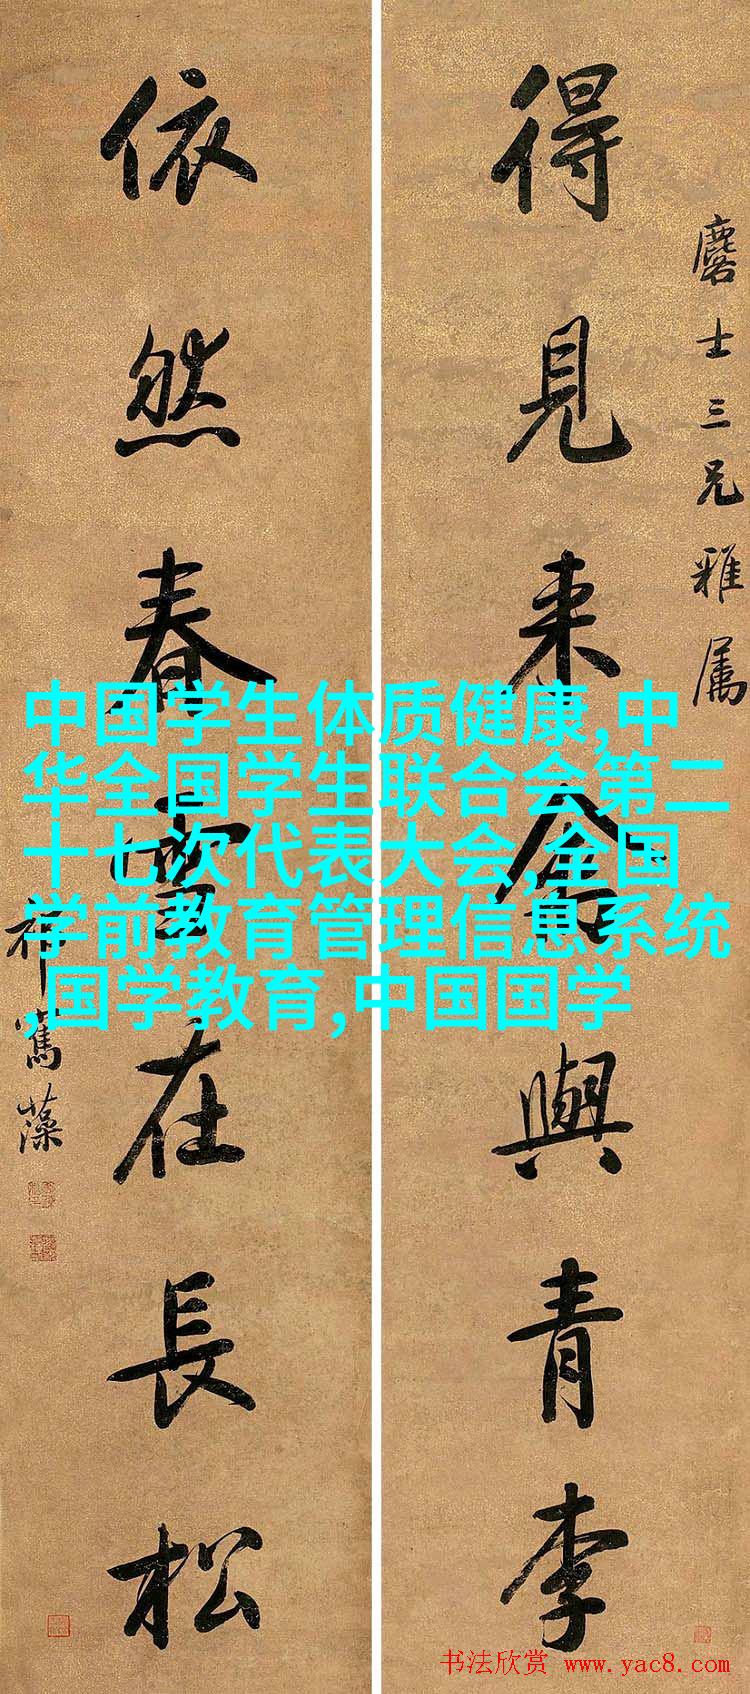 得見来禽與青李
依然春雪在長松
麐士三兄雅属
祁寯藻
中国学生体质健康,中
华全国学生联合会第二
十七次代表大会,全国
学前教育管理信息系统
,国学教育,中国国学
书法欣赏 www.yac8.com